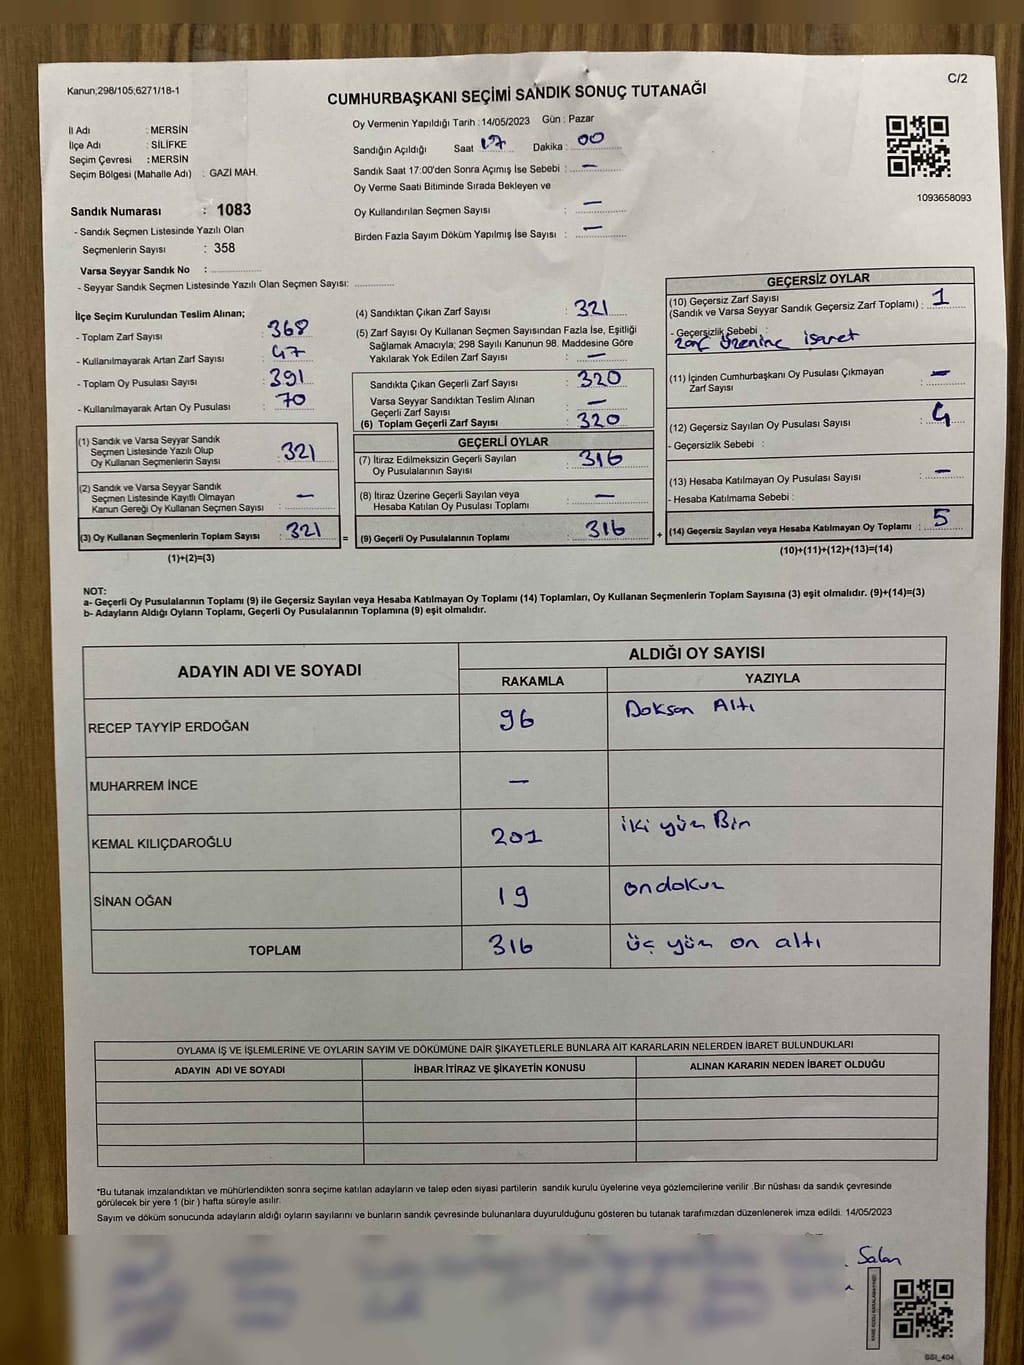 Kanun;298/105;6271/18-1
C/2
CUMHURBAŞKANI SEÇİMİ SANDIK SONUÇ TUTANAĞI
İl Adı : MERSİN
İlçe Adı : SİLİFKE
Seçim Çevresi : MERSİN
Seçim Bölgesi (Mahalle Adı) : GAZİ MAH.
Sandık Numarası : 1083
- Sandık Seçmen Listesinde Yazılı Olan
Seçmenlerin Sayısı : 358
Varsa Seyyar Sandık No :
- Seyyar Sandık Seçmen Listesinde Yazılı Olan Seçmen Sayısı:
Oy Vermenin Yapıldığı Tarih : 14/05/2023 Gün : Pazar
Sandığın Açıldığı Saat 17 Dakika : 00
Sandık Saat 17:00'den Sonra Açımış İse Sebebi : —
Oy Verme Saati Bitiminde Sırada Bekleyen ve
Oy Kullandırılan Seçmen Sayısı : —
Birden Fazla Sayım Döküm Yapılmış İse Sayısı : —
1093658093
İlçe Seçim Kurulundan Teslim Alınan;
- Toplam Zarf Sayısı : 368
- Kullanılmayarak Artan Zarf Sayısı : 47
- Toplam Oy Pusulası Sayısı : 391
- Kullanılmayarak Artan Oy Pusulası : 70
(1) Sandık ve Varsa Seyyar Sandık
Seçmen Listesinde Yazılı Olup
Oy Kullanan Seçmenlerin Sayısı : 321
(2) Sandık ve Varsa Seyyar Sandık
Seçmen Listesinde Kayıtlı Olmayan
Kanun Gereği Oy Kullanan Seçmen Sayısı : —
(3) Oy Kullanan Seçmenlerin Toplam Sayısı : 321
(1)+(2)=(3)
(4) Sandıktan Çıkan Zarf Sayısı : 321
(5) Zarf Sayısı Oy Kullanan Seçmen Sayısından Fazla İse, Eşitliği
Sağlamak Amacıyla; 298 Sayılı Kanunun 98. Maddesine Göre
Yakılarak Yok Edilen Zarf Sayısı : —
Sandıkta Çıkan Geçerli Zarf Sayısı : 320
Varsa Seyyar Sandıktan Teslim Alınan
Geçerli Zarf Sayısı : —
(6) Toplam Geçerli Zarf Sayısı : 320
GEÇERLİ OYLAR
(7) İtiraz Edilmeksizin Geçerli Sayılan
Oy Pusulalarının Sayısı : 316
(8) İtiraz Üzerine Geçerli Sayılan veya
Hesaba Katılan Oy Pusulası Toplamı : —
= (9) Geçerli Oy Pusulalarının Toplamı : 316 +
GEÇERSİZ OYLAR
(10) Geçersiz Zarf Sayısı
(Sandık ve Varsa Seyyar Sandık Geçersiz Zarf Toplamı) : 1
- Geçersizlik Sebebi :
zarf üzerine işaret
(11) İçinden Cumhurbaşkanı Oy Pusulası Çıkmayan
Zarf Sayısı : —
(12) Geçersiz Sayılan Oy Pusulası Sayısı : 4
- Geçersizlik Sebebi :
(13) Hesaba Katılmayan Oy Pusulası Sayısı : —
- Hesaba Katılmama Sebebi :
(14) Geçersiz Sayılan veya Hesaba Katılmayan Oy Toplamı : 5
(10)+(11)+(12)+(13)=(14)
NOT:
a- Geçerli Oy Pusulalarının Toplamı (9) ile Geçersiz Sayılan veya Hesaba Katılmayan Oy Toplamı (14) Toplamları, Oy Kullanan Seçmenlerin Toplam Sayısına (3) eşit olmalıdır. (9)+(14)=(3)
b- Adayların Aldığı Oyların Toplamı, Geçerli Oy Pusulalarının Toplamına (9) eşit olmalıdır.
ADAYIN ADI VE SOYADI
ALDIĞI OY SAYISI
RAKAMLA YAZIYLA
RECEP TAYYİP ERDOĞAN 96 Doksan Altı
MUHARREM İNCE —
KEMAL KILIÇDAROĞLU 201 iki yüz Bir
SİNAN OĞAN 19 ondokuz
TOPLAM 316 üç yüz on altı
OYLAMA İŞ VE İŞLEMLERİNE VE OYLARIN SAYIM VE DÖKÜMÜNE DAİR ŞİKAYETLERLE BUNLARA AİT KARARLARIN NELERDEN İBARET BULUNDUKLARI
ADAYIN ADI VE SOYADI İHBAR İTİRAZ VE ŞİKAYETİN KONUSU ALINAN KARARIN NEDEN İBARET OLDUĞU
*Bu tutanak imzalandıktan ve mühürlendikten sonra seçime katılan adayların ve talep eden siyasi partilerin sandık kurulu üyelerine veya gözlemcilerine verilir .Bir nüshası da sandık çevresinde
görülecek bir yere 1 (bir ) hafta süreyle asılır.
Sayım ve döküm sonucunda adayların aldığı oyların sayılarını ve bunların sandık çevresinde bulunanlara duyurulduğunu gösteren bu tutanak tarafımızdan düzenlenerek imza edildi. 14/05/2023